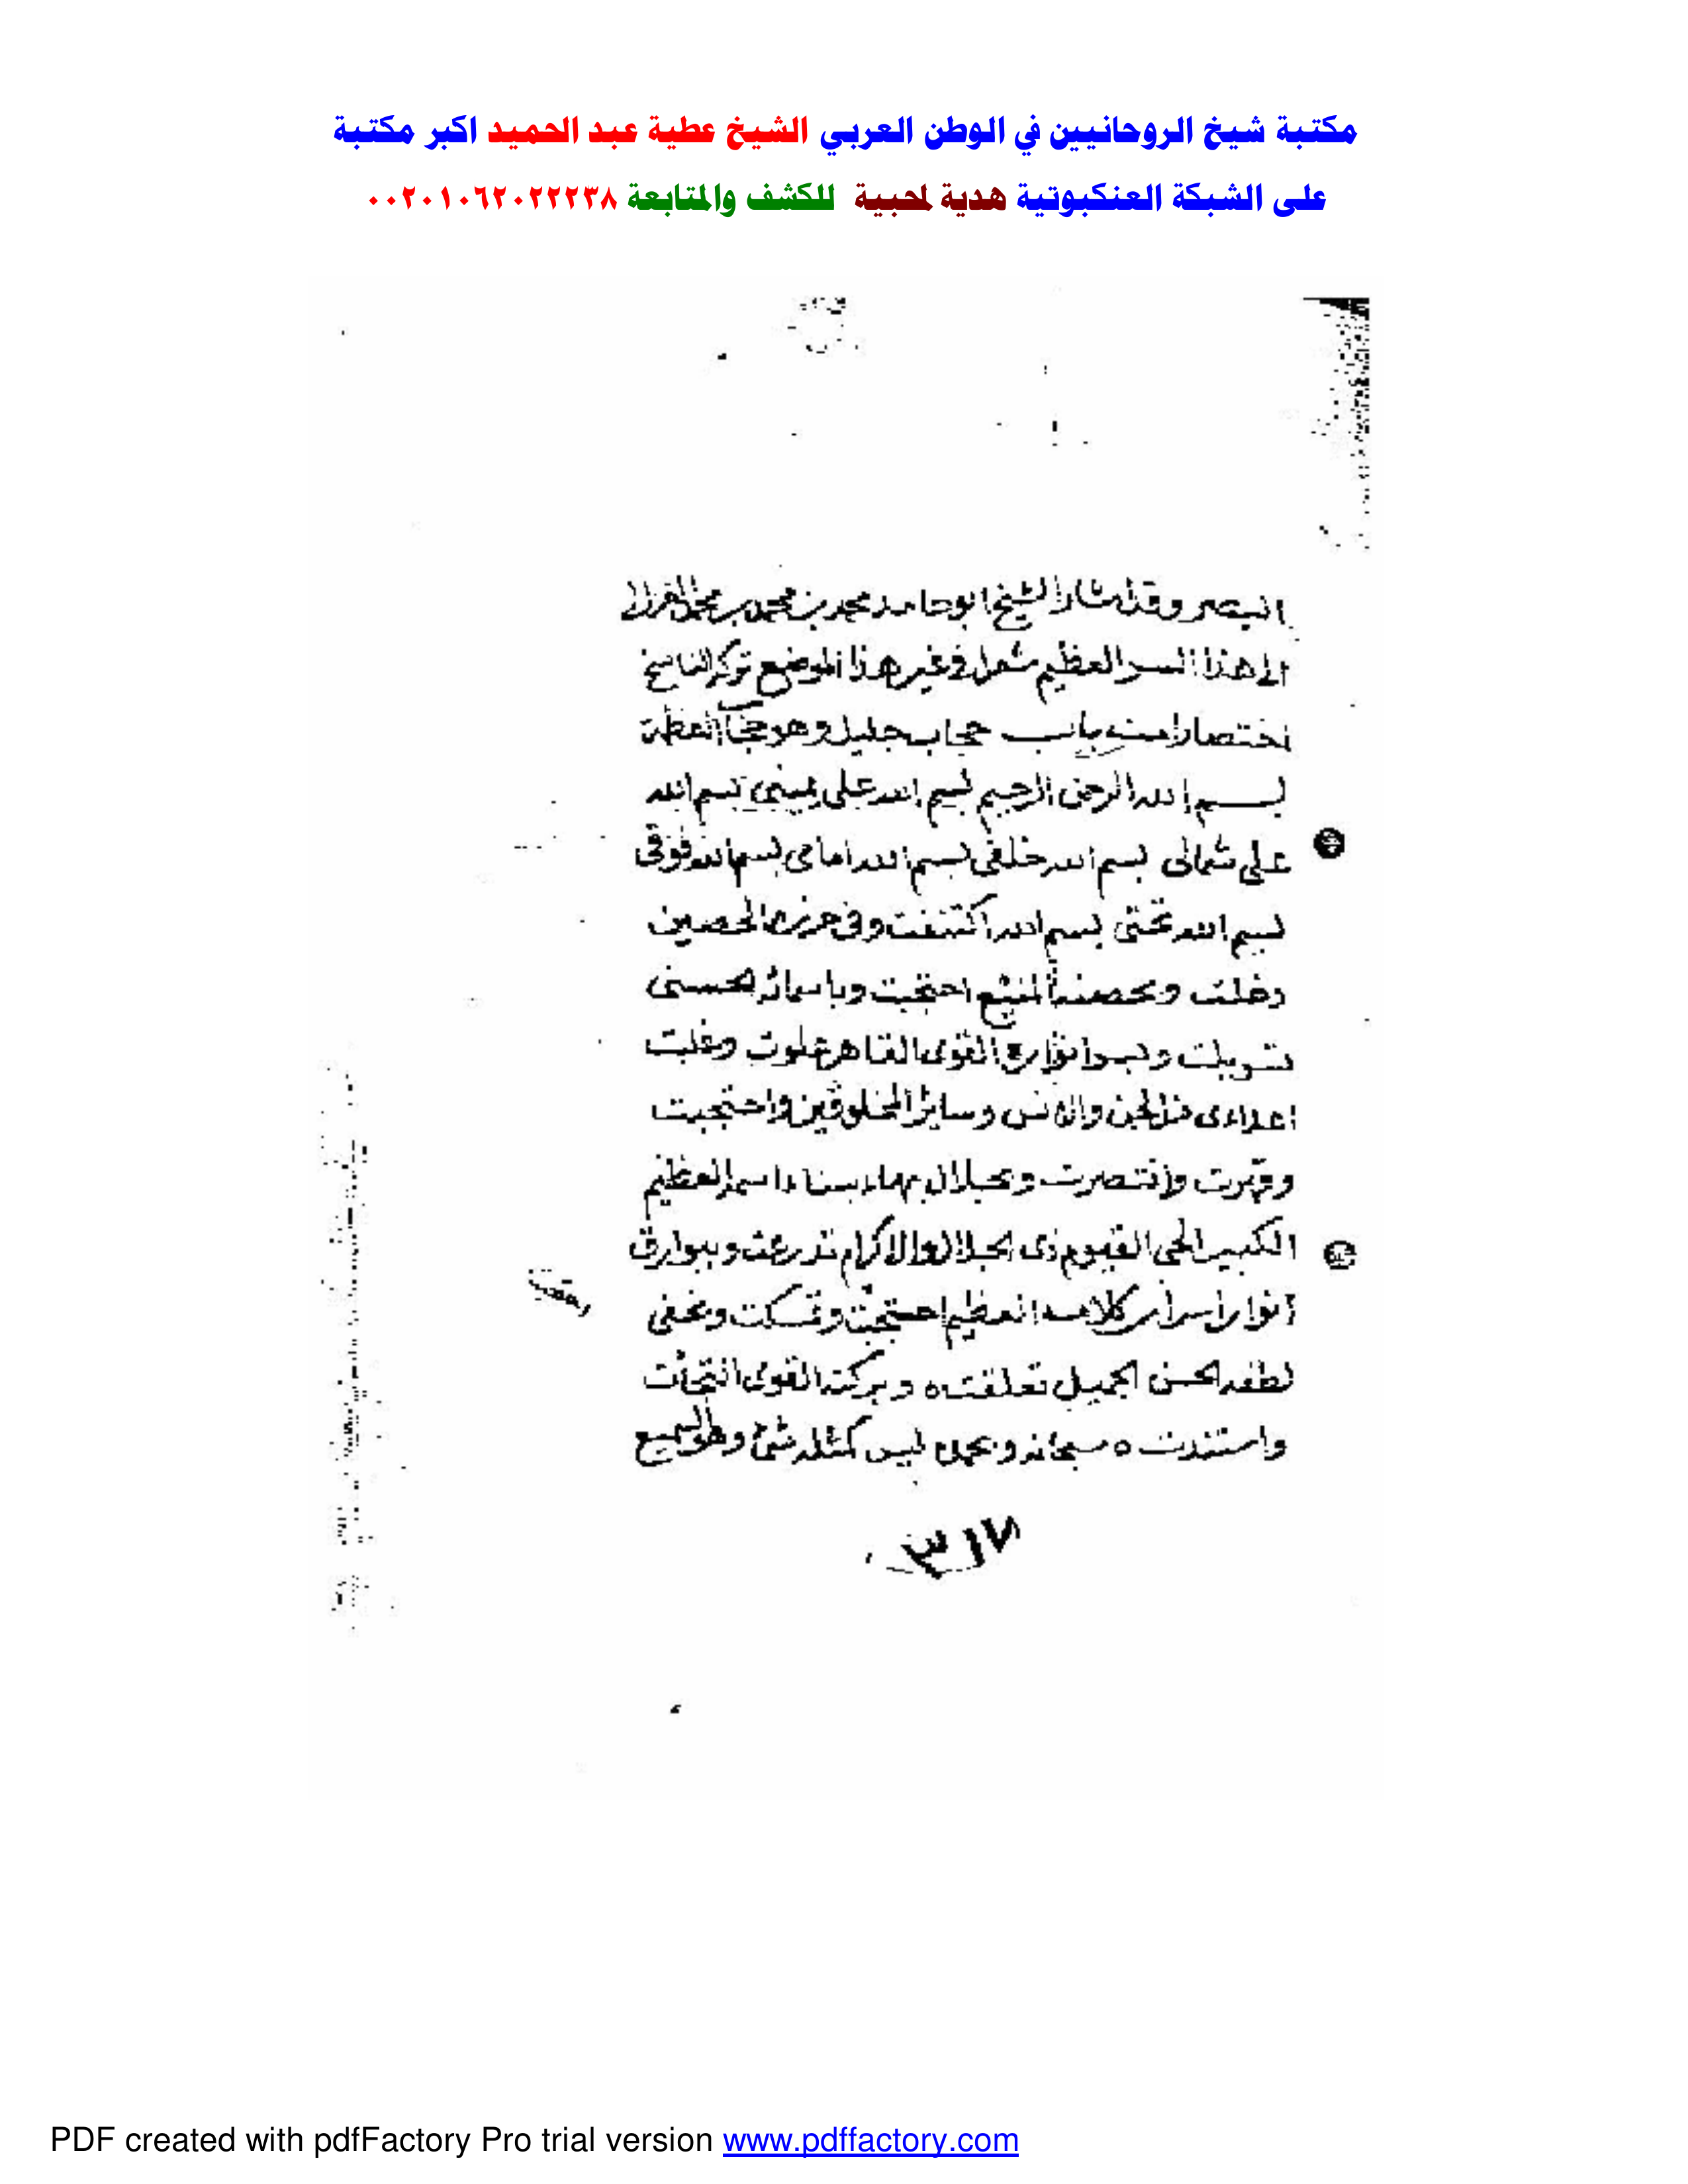 مكتبة شيخ الروحانيين في الوطن العربي الشيخ عطية عبد الحميد اكبر مكتبة
على الشبكة العنكبوتية هدية لمحبية للكشف والمتابعة ٠٠٢٠١٠٦٢٠٢٢٢٣٨
البصر وقد اشار الشيخ ابو حامد محمد بن محمد بن محمد الغزالى
الى هذا السر العظيم فى غير هذا الموضع تركه الناسخ
اختصارا منه باب حجاب جليل وهو حجاب العظمة
بسم الله الرحمن الرحيم بسم الله على يمينى بسم الله
على شمالى بسم الله خلفى بسم الله امامى بسم الله فوقى
بسم الله تحتى بسم الله اكتنفت وفى حرزه الحصين
دخلت وبحصنه المنيع احتجبت وباسمائه الحسنى
تسربلت القوى القاهر علوت وغلبت
اعداءى من الجن والانس وساير المخلوقين واحتجبت
وقهرت وانتصرت وبجلال بهاء سناء اسمه العظيم
الكبير الحى القيوم ذى الجلال والاكرام تدرعت وببوارق
انوار اسرار كلامه العظيم احتجبت وتمسكت وبخفى
لطفه الحسن الجميل تعلقت ه وبركنه القوى التجأت
واستندت ه سبحانه وبحمده ليس كمثله شئ وهو السميع
٣١٧
PDF created with pdfFactory Pro trial version www.pdffactory.com